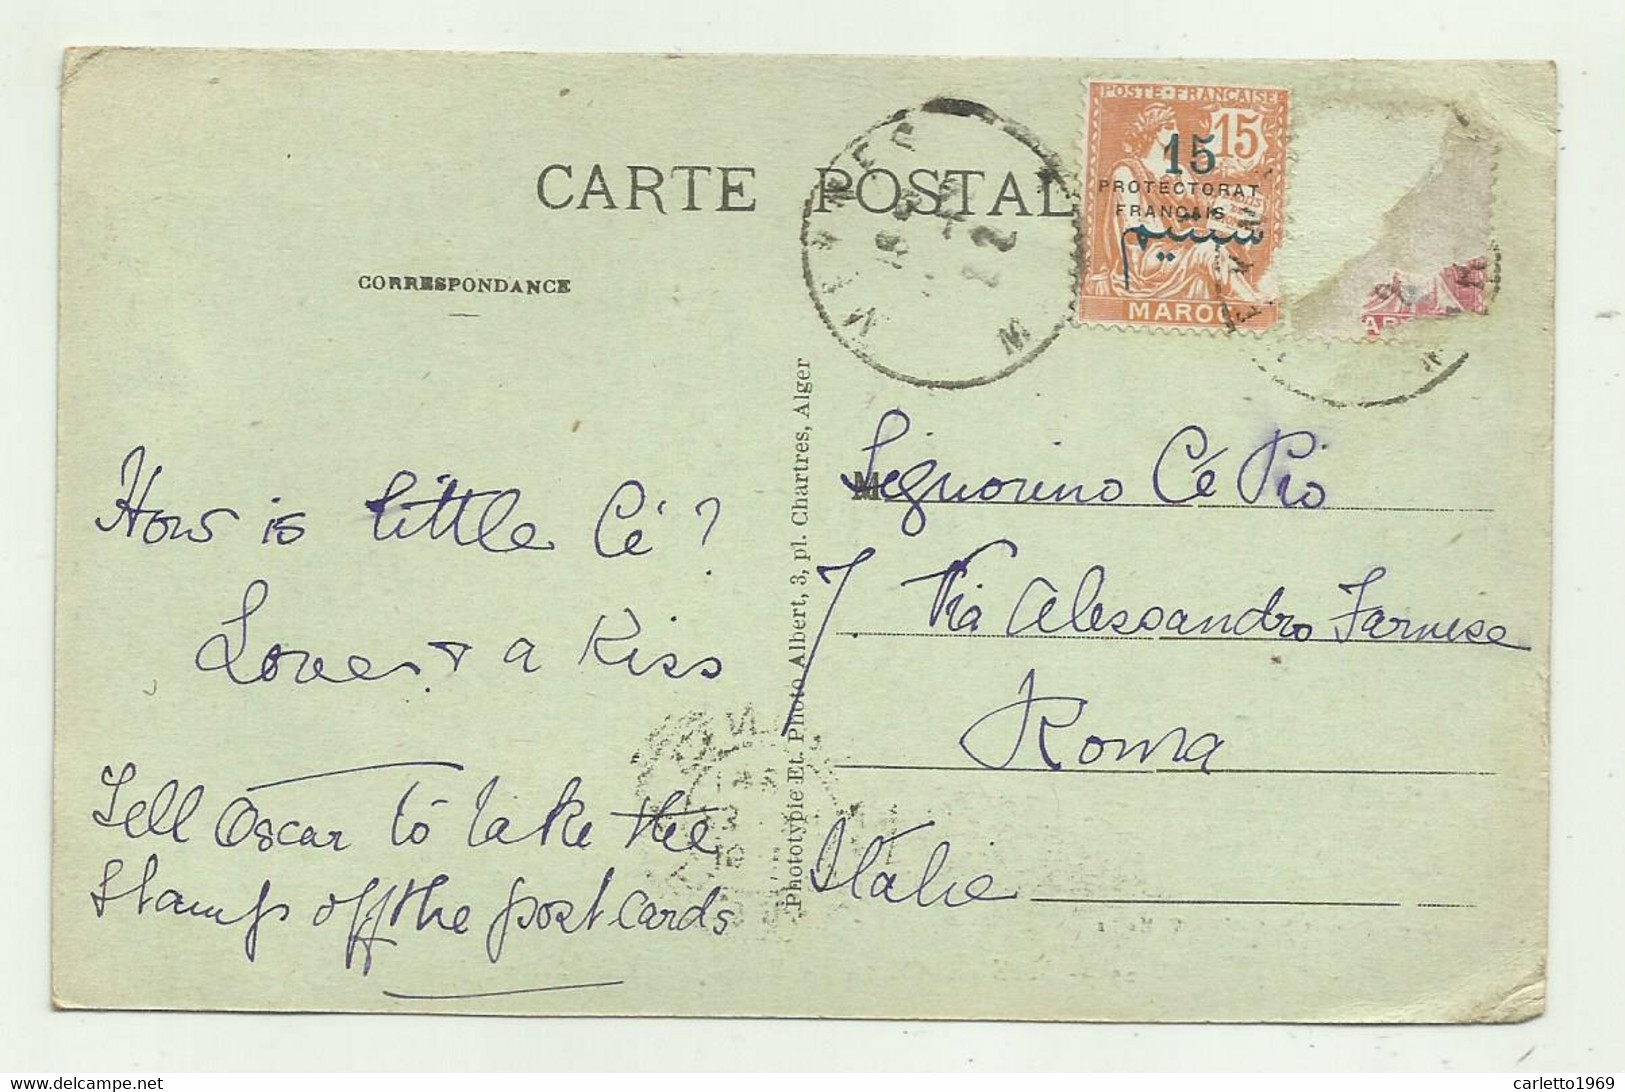 CARTE POSTALE
CORRESPONDANCE
POSTE FRANÇAISE
15
15
PROTECTORAT
FRANÇAIS
سنتيم
MAROC
MEKNES
How is little Cé?
Love & a Kiss
Tell Oscar to take the
stamps off the post cards
Phototypie Et. Photo Albert, 3, pl. Chartres, Alger
M
Signorino Cé Pio
7 Via Alessandro Farnese
Roma
Italie
carletto1969